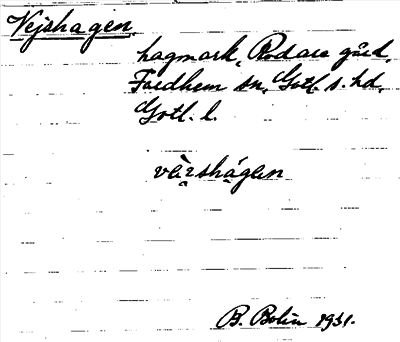 Vejshagen.
hagmark, Rodarsgård,
Fardhem sn, Gotl. s. hd,
Gotl. l.
B. Bolin 1931.